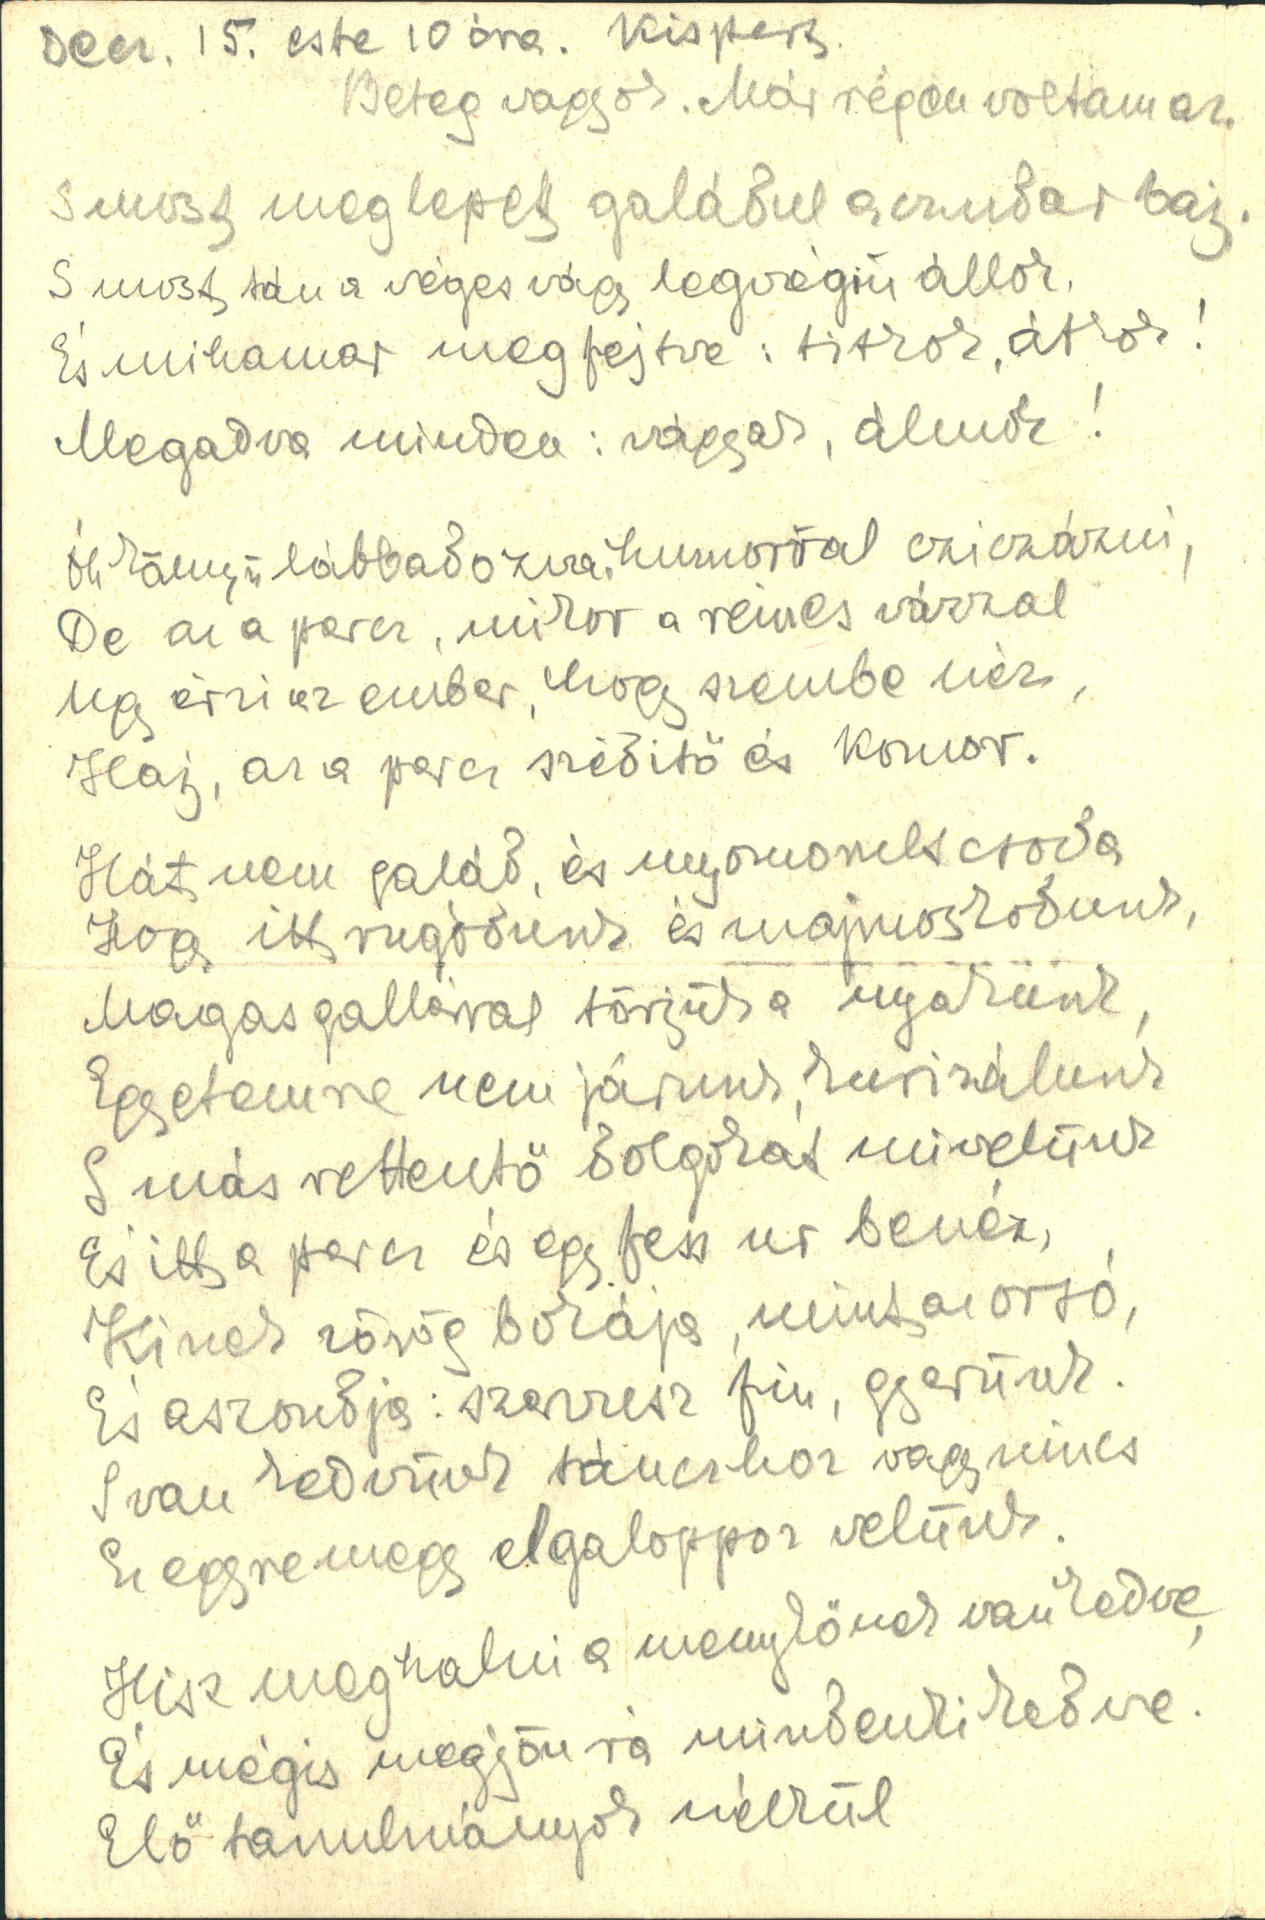 Decz. 15. este 10 óra. Kispest.
Beteg vagyok. Már régen voltam az.
S most meglepett galádul a czudar baj.
S most tán a véges vágy legvégin állok.
És mihamar megfejtve: titkok, átkok!
Megadva minden: vágyak, álmok!
Óh könnyü lábbadozva, humorral cziczázni,
De az a percz, mikor a nincs vázzal
Ugy érzi az ember, hogy szembe néz,
Haj, az a percz szédítő és komor.
Hát nem galád, és nyomorult csoda
Hogy itt rugódunk és majmoskodunk,
Magas gallérral törjük a nyakunk,
Egyetemre nem járunk, kurizálunk
S más rettentő dolgokat mivelünk
És itt a percz és egy fess ur benéz,
Kinek zörög bokája, mint az orsó,
És aszondja: szervusz fiu, gyerünk.
S van kedvünk tánczhoz vagy nincs
Ez egyre megy elgaloppoz velünk.
Hisz meghalni a mennykőnek van kedve,
És mégis megjön rá mindenki kedve.
Elő tanulmányok nélkül